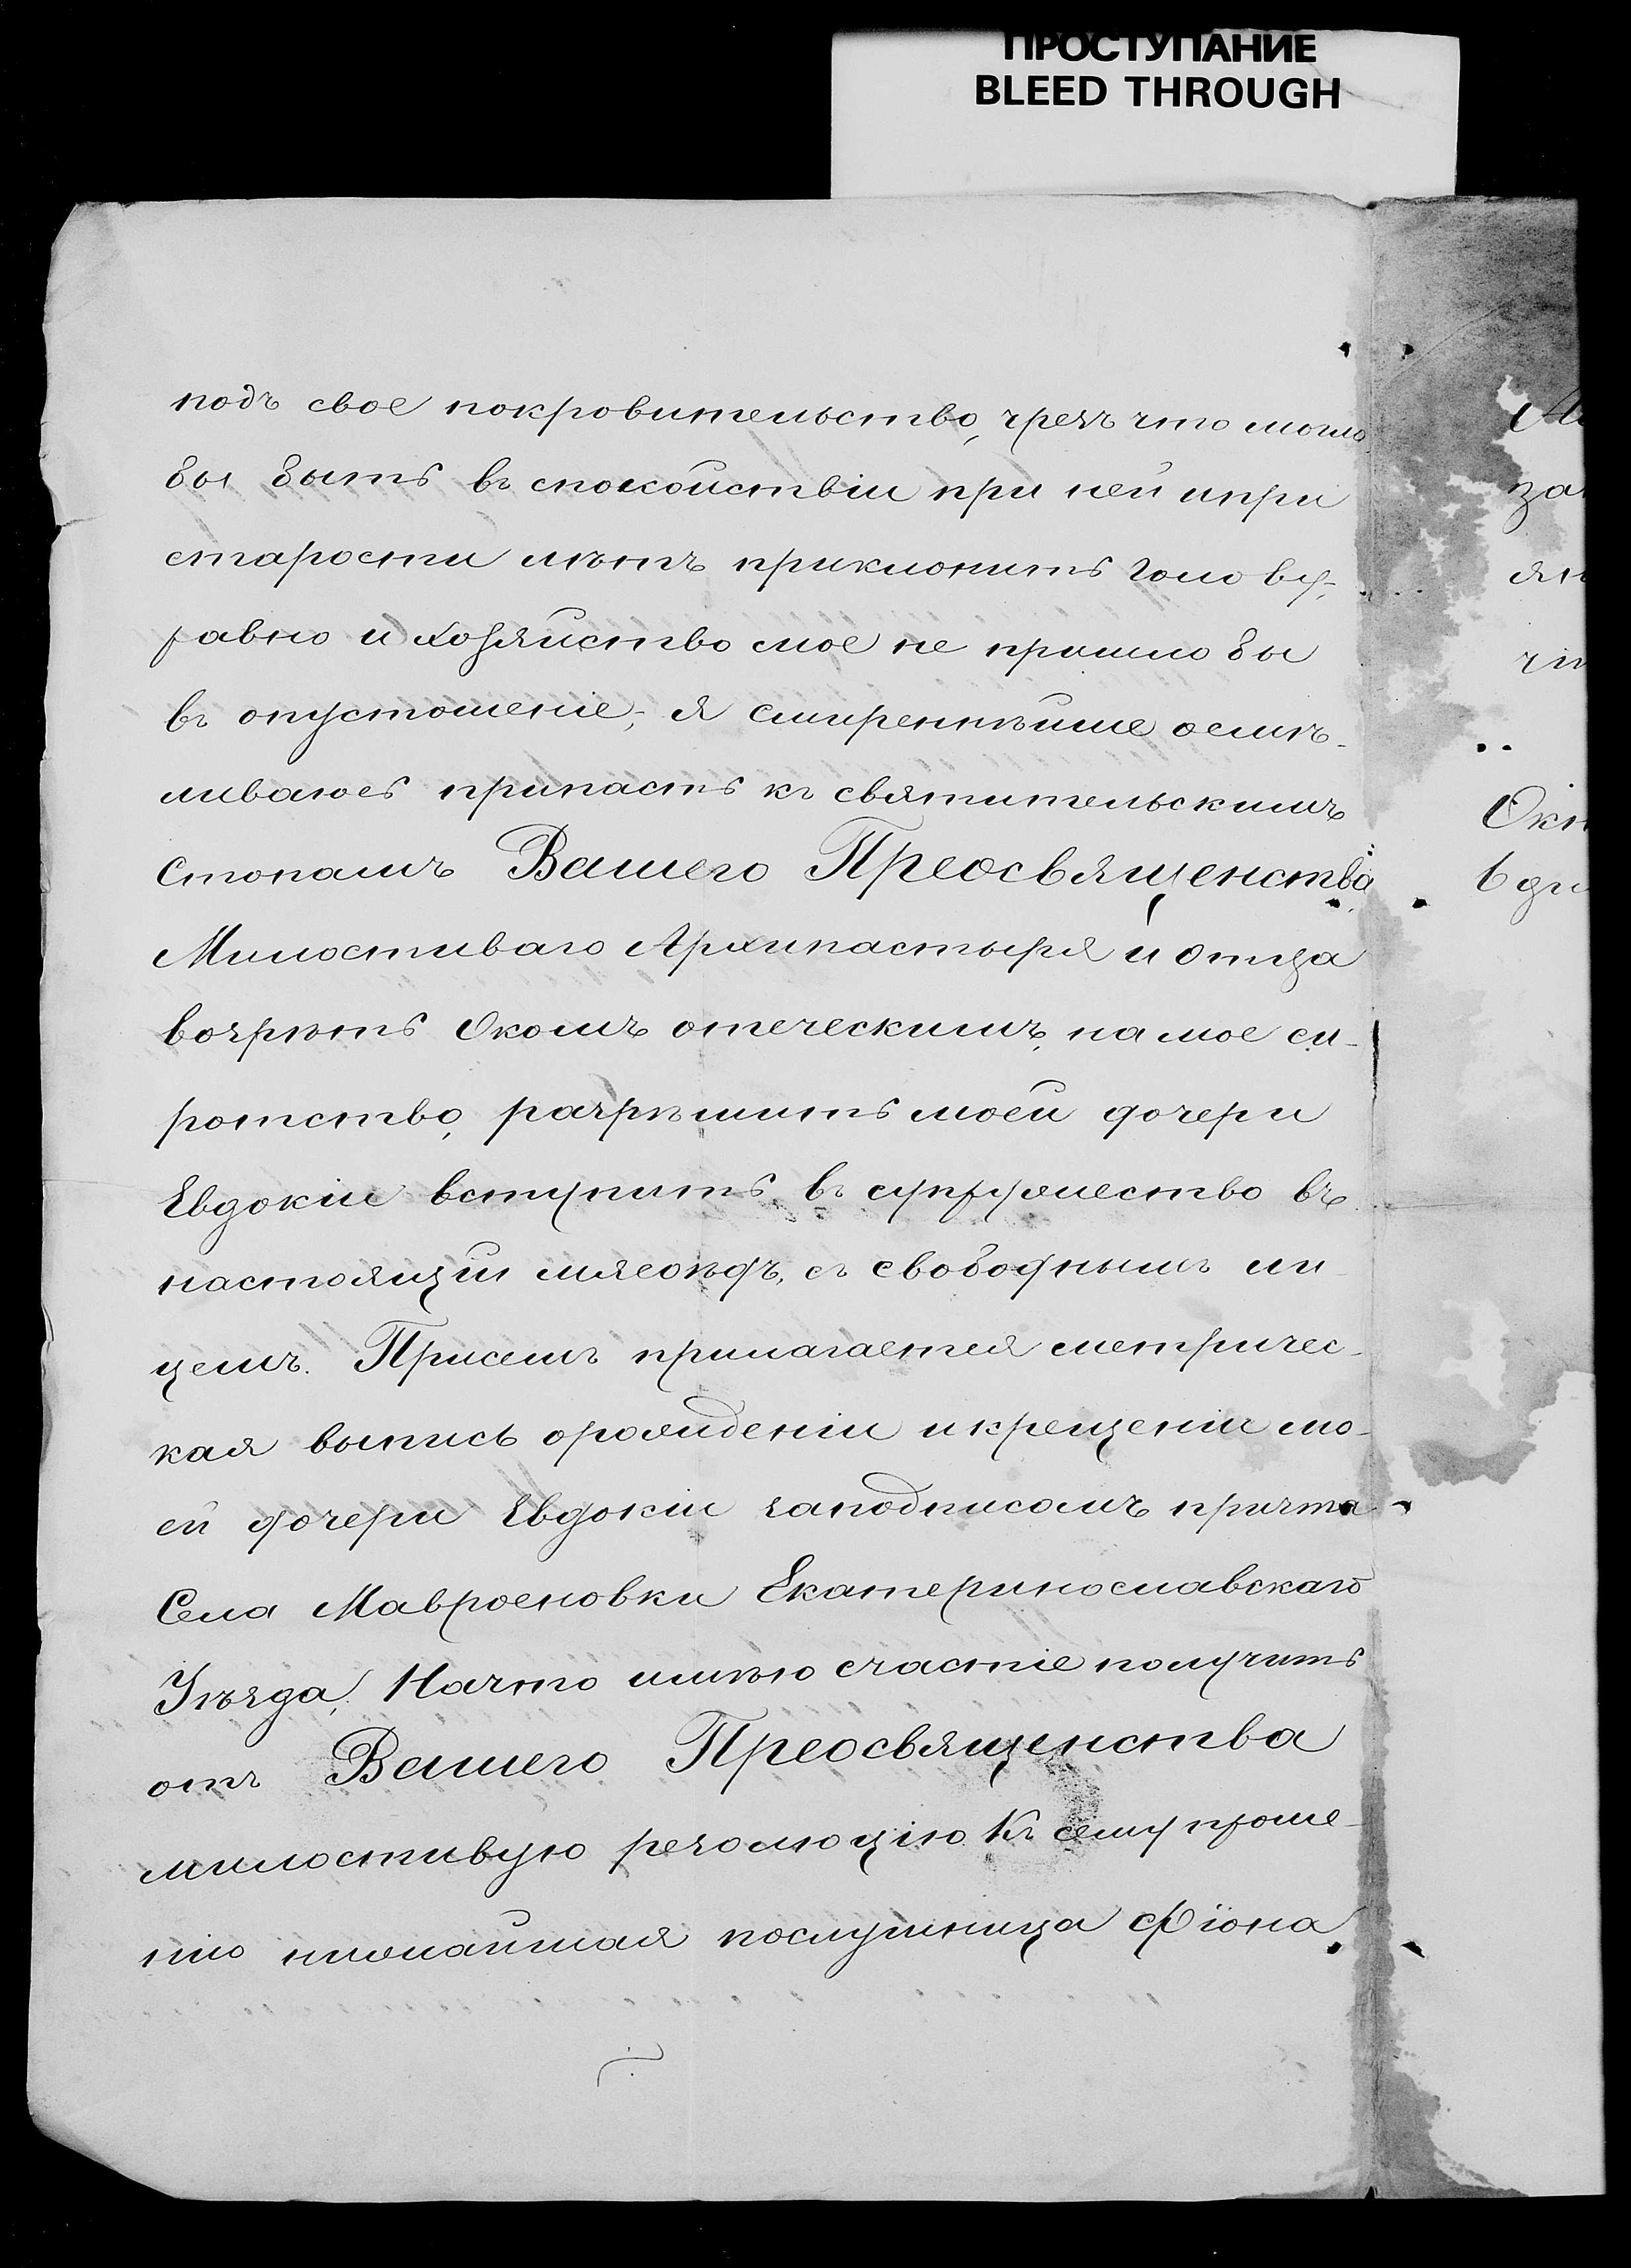 ПРОСТУПАНИЕ
BLEED THROUGH
подъ свое покровительство, чрезъ что могла
бы быть въ спокойствіи при ней и при
старости лѣтъ приклонить голову;
равно и хозяйство мое не пришло бы
въ опустошеніе; я смиреннѣйше осмѣ-
ливаюсь припасть къ святительскимъ
стопамъ Вашего Преосвященства
Милостиваго Архипастыря и Отца
возрѣть Окомъ отеческимъ, на мое си-
ротство, разрѣшить моей дочери
Евдокіи вступить въ супружество въ
настоящій мясоѣдъ, съ свободнымъ ли-
цемъ. Присемъ прилагается метричес-
кая выпись о рожденіи и крещеніи мо-
ей дочери Евдокіи за подписомъ причта
Села Уѣзда, На что имѣю счастіе получить
отъ Вашего Преосвященства
милостивую резолюцію. Къ сему проше-
нію нижайшая послушница Фіона
за
Окт